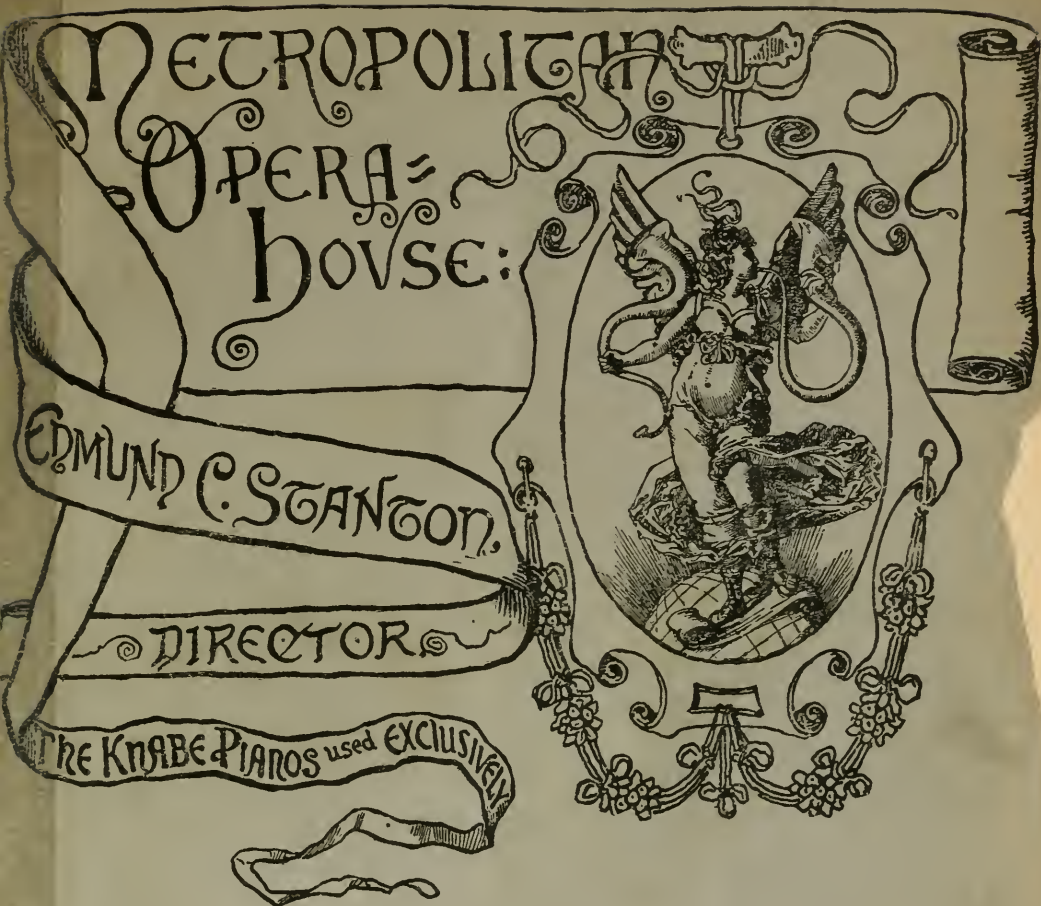 METROPOLITAN
OPERA=
HOVSE:
EDMUND C. STANTON,
DIRECTOR
THE KNABE PIANOS used EXCLUSIVELY